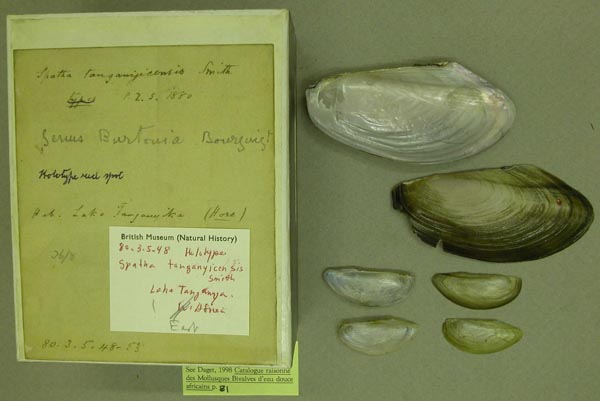 Spatha tanganyicensis Smith
types P.Z.S. 1880
Genus Burtonia Bourguigt
Holotype red spot
Hab. Lake Tanganyika (Hore)
80.3.5.48-53
British Museum (Natural History)
80.3.5.48 Holotype
Spatha tanganyicensis
Smith
Lake Tanganyia.
East
See Daget, 1998 Catalogue raisonné
des Mollusques Bivalves d'eau douce
africains p. 81